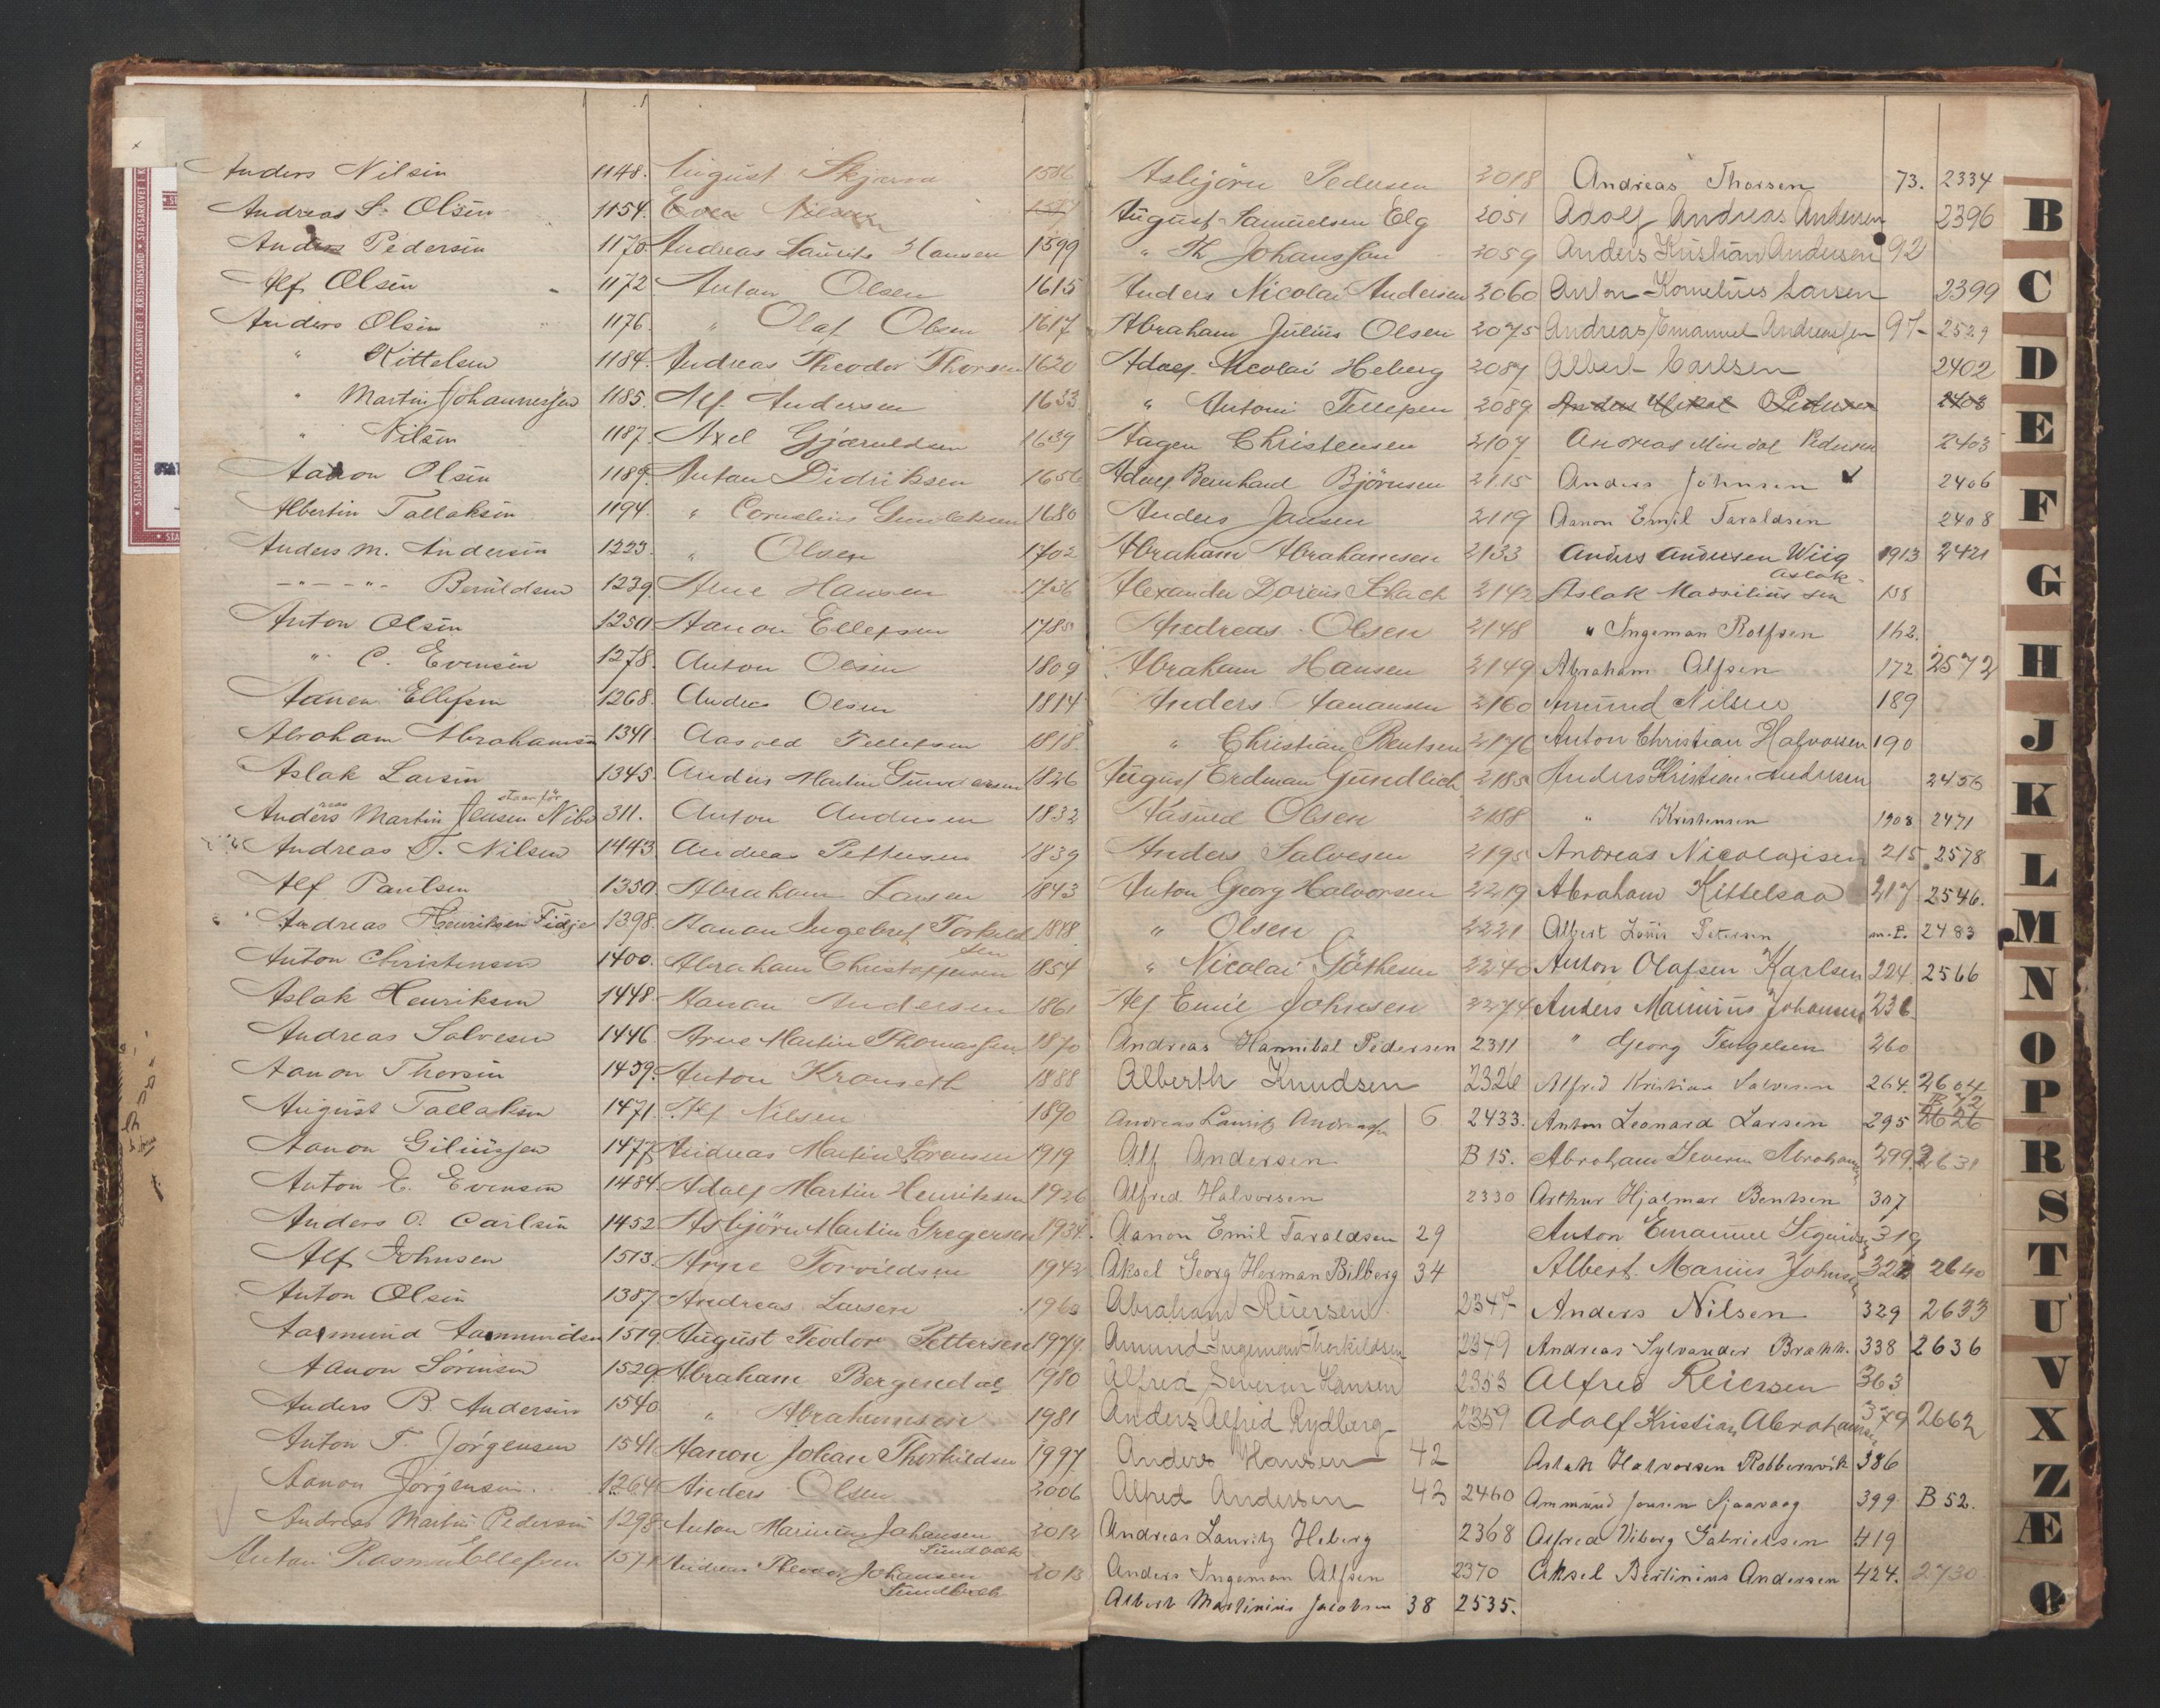 Anders Nilsen 1148.
Andreas S. Olsen 1154.
Anders Pedersen 1170.
Alf Olsen 1172.
Anders Olsen 1176.
" Kittelsen 1184.
" Martin Johannessen 1185.
" Nilsen 1187.
Aanon Olsen 1189.
Albertin Tallaksen 1194.
Anders M. Andersen 1223.
—"— —"— Beruldsen 1239
Anton Olsen 1250
" C. Evensen 1278.
Aanen Ellefsen 1268.
Abraham Abrahamsen 1341.
Aslak Larsen 1345.
Anders Martin Jensen 311.
Andreas T. Nilsen 1443.
Alf Paulsen 1350
Andreas Henriksen Fidje 1398.
Anton Christensen 1400.
Aslak Henriksen 1448.
Andreas Salvesen 1446.
Aanon Thorsen 1459.
August Tallaksen 1471.
Aanon 1477
Anton E. Evensen 1484.
Anders O. Carlsen 1452
Alf Johnsen 1513.
Anton Olsen 1387
Aasmund Aasmundsen 1519.
Aanon Sørensen 1529
Anders B. Andersen 1540
Anton T. Jörgensen 1541
Aanon Jörgensen 1264
Andreas Martin Pedersen 1298
Anton Rasmus Ellefsen 157
August 1586
Andreas Laurits Hansen 1599
Anton Olsen 1615
" Olaf Olsen 1617
Andreas Theodor Thorsen 1620
Alf Andersen 1633
Axel Gjæruldsen 1639
Anton Didriksen 1656
" Cornelius 1680
" Olsen 1702
Arne Hansen 1736
Aanon Ellefsen 1785
Anton Olsen 1809
Anders Olsen 1814
Aasold Tellefsen 1818
Anders Martin Gundersen 1826
Anton Andersen 1832
Andreas Pettersen 1839
Abraham Larsen 1843
Aanon Ingebret Torkildsen 1848
Abraham Christoffersen 1854
Aanon Andersen 1861
Arne Martin Thomassen 1870
Anton Kronseth 1888
Alf Nilsen 1890
Andreas Martin Sörensen 1919
Adolf Martin Henriksen 1926
Asbjörn Martin Gregersen 1934
Arne Torvildsen 1942
Andreas Larsen 1960
August Teodor Pettersen 1974
Abraham Bergendal 1980
" Abrahamsen 1981
Aanon Johan Thorkildsen 1997
Anders Olsen 2006
Anton Marinius Johansen 2012
Andreas Theodor Johansen 2013
Sundbech
Asbjörn Pedersen 2018
August Samuelsen Elg 2051
" Th Johansson 2059
Anders Nicolai Andersen 2060
Abraham Julius Olsen 2075
Adolf Nicolai Heberg 2087
" Antoni Tellefsen 2089
Aagen Christensen 2107
Adolf Bernhard Björnsen 2115
Anders Jansen 2119
Abraham Abrahamsen 2133
Alexander Schach 2142
Andreas Olsen 2148
Abraham Hansen 2149
Anders Aanonsen 2160
" Christian Bentsen 2176
August Erdman Gundlich 2185
Aasmed Olsen 2188
Anders Salvesen 2195
Anton Georg Halvorsen 2219
" Olsen 2221
" Nicolai Göthesen 2240
Alf Emil Johnsen 2274
Andreas Hannibal Pedersen 2311
Alberth Knudsen 2326
Andreas Lauritz Andreassen 6 2433.
Alf Andersen B 15.
Alfred Halvorsen 2330
Aanon Emil Taraldsen 29
Aksel Georg Herman Bilberg 34
Abraham Reiersen 2347
Amund Ingeman Thorkildsen 2349
Alfred Severin Hansen 2353
Anders Alfred Rydberg 2359
Anders Hansen 42
Alfred Andersen 43 2460
Andreas Lauritz Heberg 2368
Anders Ingeman Alfsen 2370
Albert Martinius Jacobsen 38 2535.
Andreas Thorsen 73. 2334
Adolf Andreas Andersen 2396
Anders Kristian Andersen 92
Anton Kornelius Larsen 2399
Andreas Emanuel Andreassen 97 2529
Albert Carlsen 2402
Anders Mikal Pedersen 2403
Andreas Mindal Pedersen 2403
Anders Johnsen 2406
Aanon Emil Taraldsen 2408
Anders Andersen Wiig 1913 2421
Aslak
Aslak 138
" Ingeman Rolfsen 162.
Abraham Alfsen 172 2572
Amund Nilsen 189
Anton Christian Halvorsen 190
Anders Kristian Andersen 2456
" Kristensen 1908 2471
Andreas Nicolaisen 215 2578
Abraham Kittelsaa 217 2546.
Albert Louis Petersen 2483
Anton Olafsen Karlsen 224 2566
Anders Marinius Johansen 236.
" Georg Tengelsen 260
Alfred Kristian Salvesen 264. 2604
B 72
Anton Leonard Larsen 295 2626
Abraham Severin Abrahamsen 299 2631
Arthur Hjalmar Bentsen 307
Anton Emanuel Sigurdsen 319
Albert Marius Johnsen 322 2640
Anders Nilsen 329 2633
Andreas Sylvander Brakk. 338 2636
Alfred Reiersen 363
Adolf Kristian Abrahamsen 379 2662
Aslak Halvorsen Robbersvik 386
Ammund Jonsen Sjaavaag 399 B 52.
Alfred Viborg Gabrielsen 419
Aksel Bertinius Andersen 424. 2730
B
C
D
E
F
G
H
J
K
L
M
N
O
P
R
S
T
U
V
X
Z
Æ
Ø